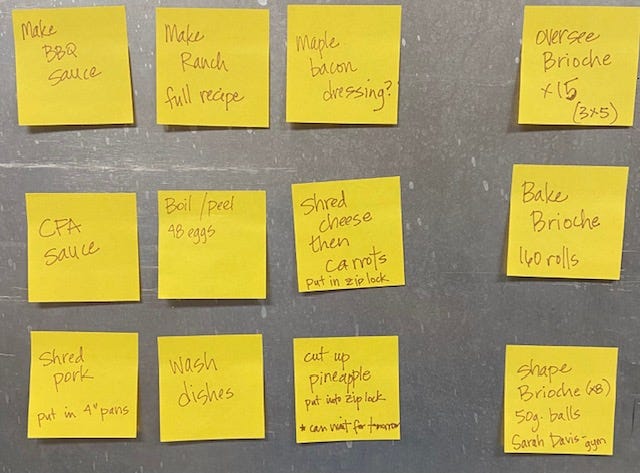 Make
BBQ
sauce
Make
Ranch
full recipe
Maple
bacon
dressing?
oversee
Brioche
x15
(3x5)
CFA
sauce
Boil/peel
48 eggs
Shred
cheese
then
carrots
put in zip lock
Bake
Brioche
160 rolls
Shred
pork
put in 4" pans
wash
dishes
cut up
pineapple
put into zip lock
* can wait for tomorrow
shape
Brioche (x8)
50g. balls
Sarah Davis-gym